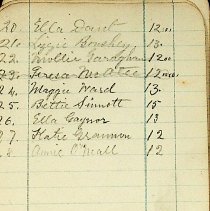 20. Ella Daut 12.00
21. Lizzie Boushley 13
22. Mollie Garaghan 12.00
23. Teresa McAtee 12.00
24. Maggie Ward 13.
25. Bettie Sinnott 15
26. Ella Gaynor 13
27. Katie Grannon 12
Annie O'Neall 12